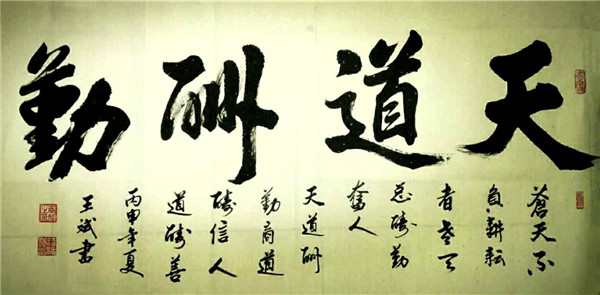 天道酬勤
蒼天不
負耕耘
者老天
总酬勤
奮人
天道酬
勤商道
酬信人
道酬善
丙申年夏
王斌書